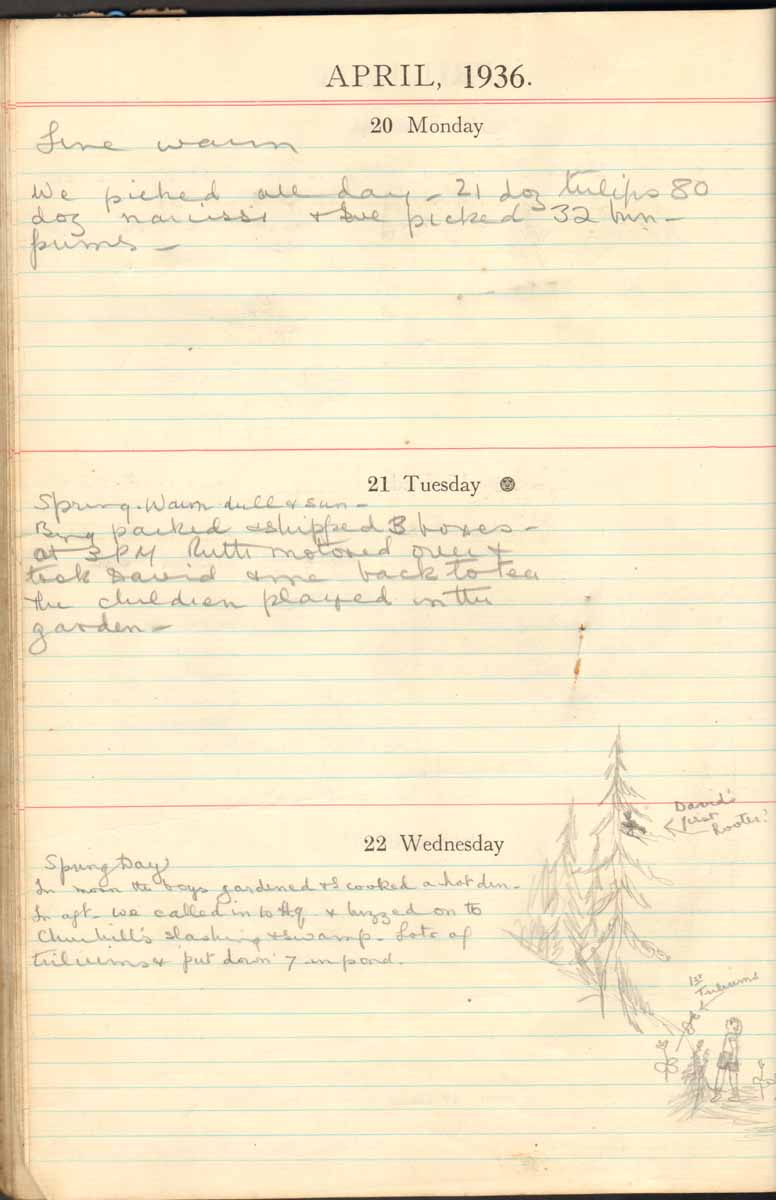 APRIL, 1936.
20 Monday
Fine warm
We picked all day - 21 doz tulips 80
doz narcissi & Sue picked 32 bun -
prims -
21 Tuesday
Spring. Warm dull & sun -
Bing packed & shipped 3 boxes -
at 3 PM Ruth motored over &
took David & me back to tea
the children played in the
garden -
22 Wednesday
Spring Day
In morn the boys gardened & I cooked a hot din -
In aft - we called in to Hq & buzzed on to
Churchill's slashing & swamp - Lots of
triliums & put down 7 in pond.
David's
first
Rooter!
1st
Triliums